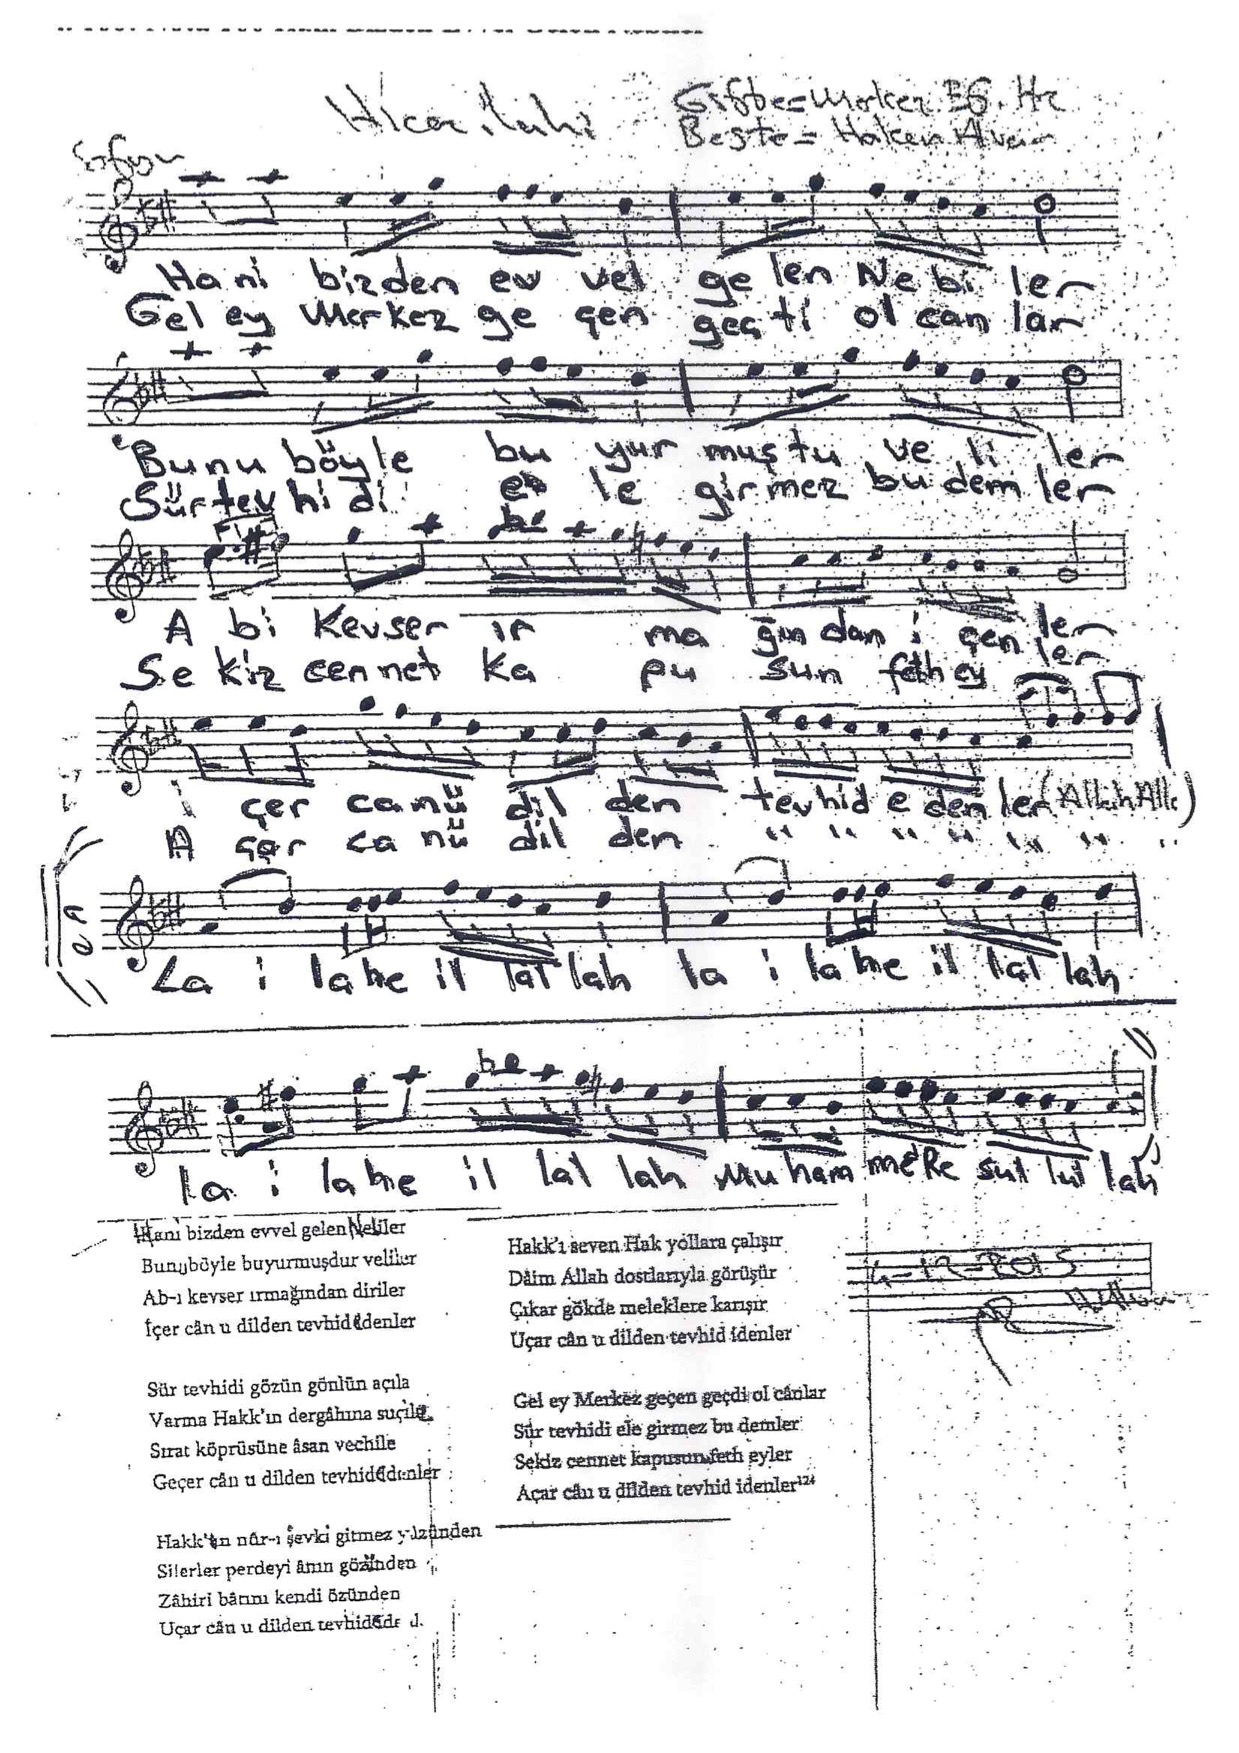 Hicaz ilahi
Güfte= Merkez Ef. Hz
Beste= Hakan Alvan
Sofyan
Ha ni bizden ev vel ge len Ne bi ler
Gel ey Merkez ge çen geç ti ol can lar
Bunu böyle bu yur muş tu ve li ler
Sür tev hi di e le girmez bu dem ler
A bi Kevser ır ma ğın dan i çen ler
Se kiz cennet ka pu sun feth ey ler
i çer canü dil den tevhid e den ler (Allah Alla)
A çar ca nü dil den " " " " " " "
La i la he il lal lah la i la he il lal lah
la i la he il lal lah Mu ham me Re sul lul lah
Hani bizden evvel gelen Nebiler
Bunu böyle buyurmuşdur veliler
Ab-ı kevser ırmağından diriler
İçer cân u dilden tevhid edenler
Sür tevhidi gözün gönlün açıla
Varma Hakk'ın dergâhına suçile
Sırat köprüsüne âsan vechile
Geçer cân u dilden tevhid edenler
Hakk'ın nûr-ı şevki gitmez yüzünden
Silerler perdeyi ânın gözünden
Zâhiri bâtını kendi özünden
Uçar cân u dilden tevhid ede
Hakk'ı seven Hak yollara çalışır
Dâim Allah dostlarıyla görüşür
Çıkar gökde meleklere karışır
Uçar cân u dilden tevhid idenler
Gel ey Merkez geçen geçdi ol cânlar
Sür tevhidi ele girmez bu demler
Sekiz cennet kapusun feth eyler
Açar cân u dilden tevhid idenler¹²⁴
4-12-2015